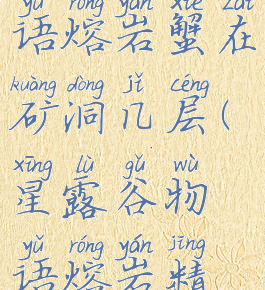 yǔ róng yán xiè zài
语熔岩蟹在
kuàng dòng jǐ céng
矿洞几层(
xīng lù gǔ wù
星露谷物
yǔ róng yán jīng
语熔岩精